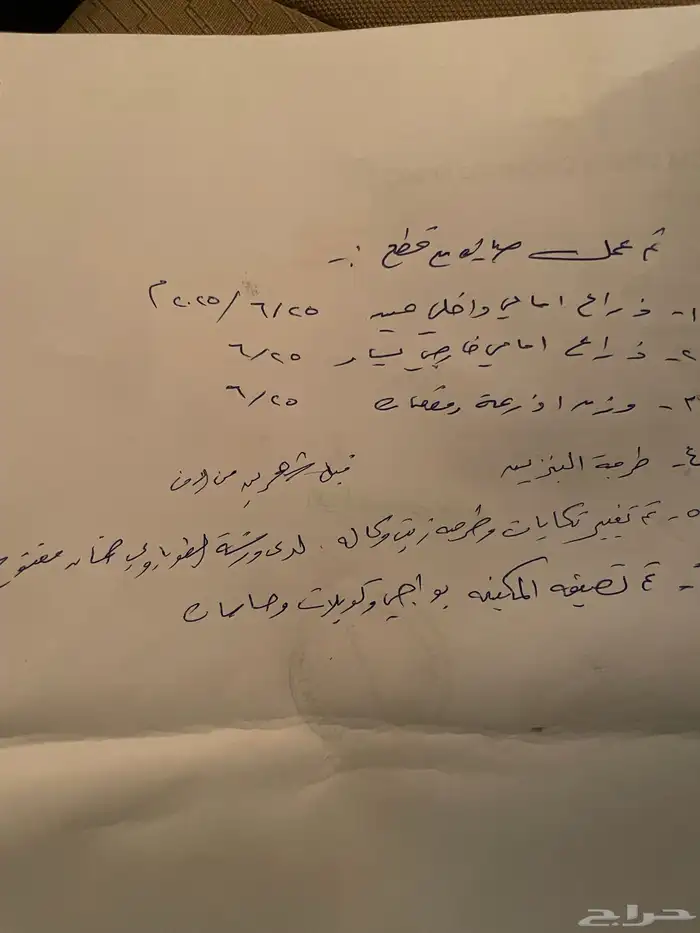 تم عمل صيانه مع قطع :-
١- ذراع امامي داخلي يمين ٦/٢٥/ ٢٠٢٥م
٢- ذراع امامي خارجي يسار ٦/٢٥
٣- وزن اذرعة ومقصات ٦/٢٥
٤- طرمبة البنزين قبل شهرين من الان
٥- تم تغيير تكايات وطرمبه زيت وكاله . لدى ورشة ضمان مفتوح
- تم تصفيه المكينه بواجي وكويلات وحساسات
حراج